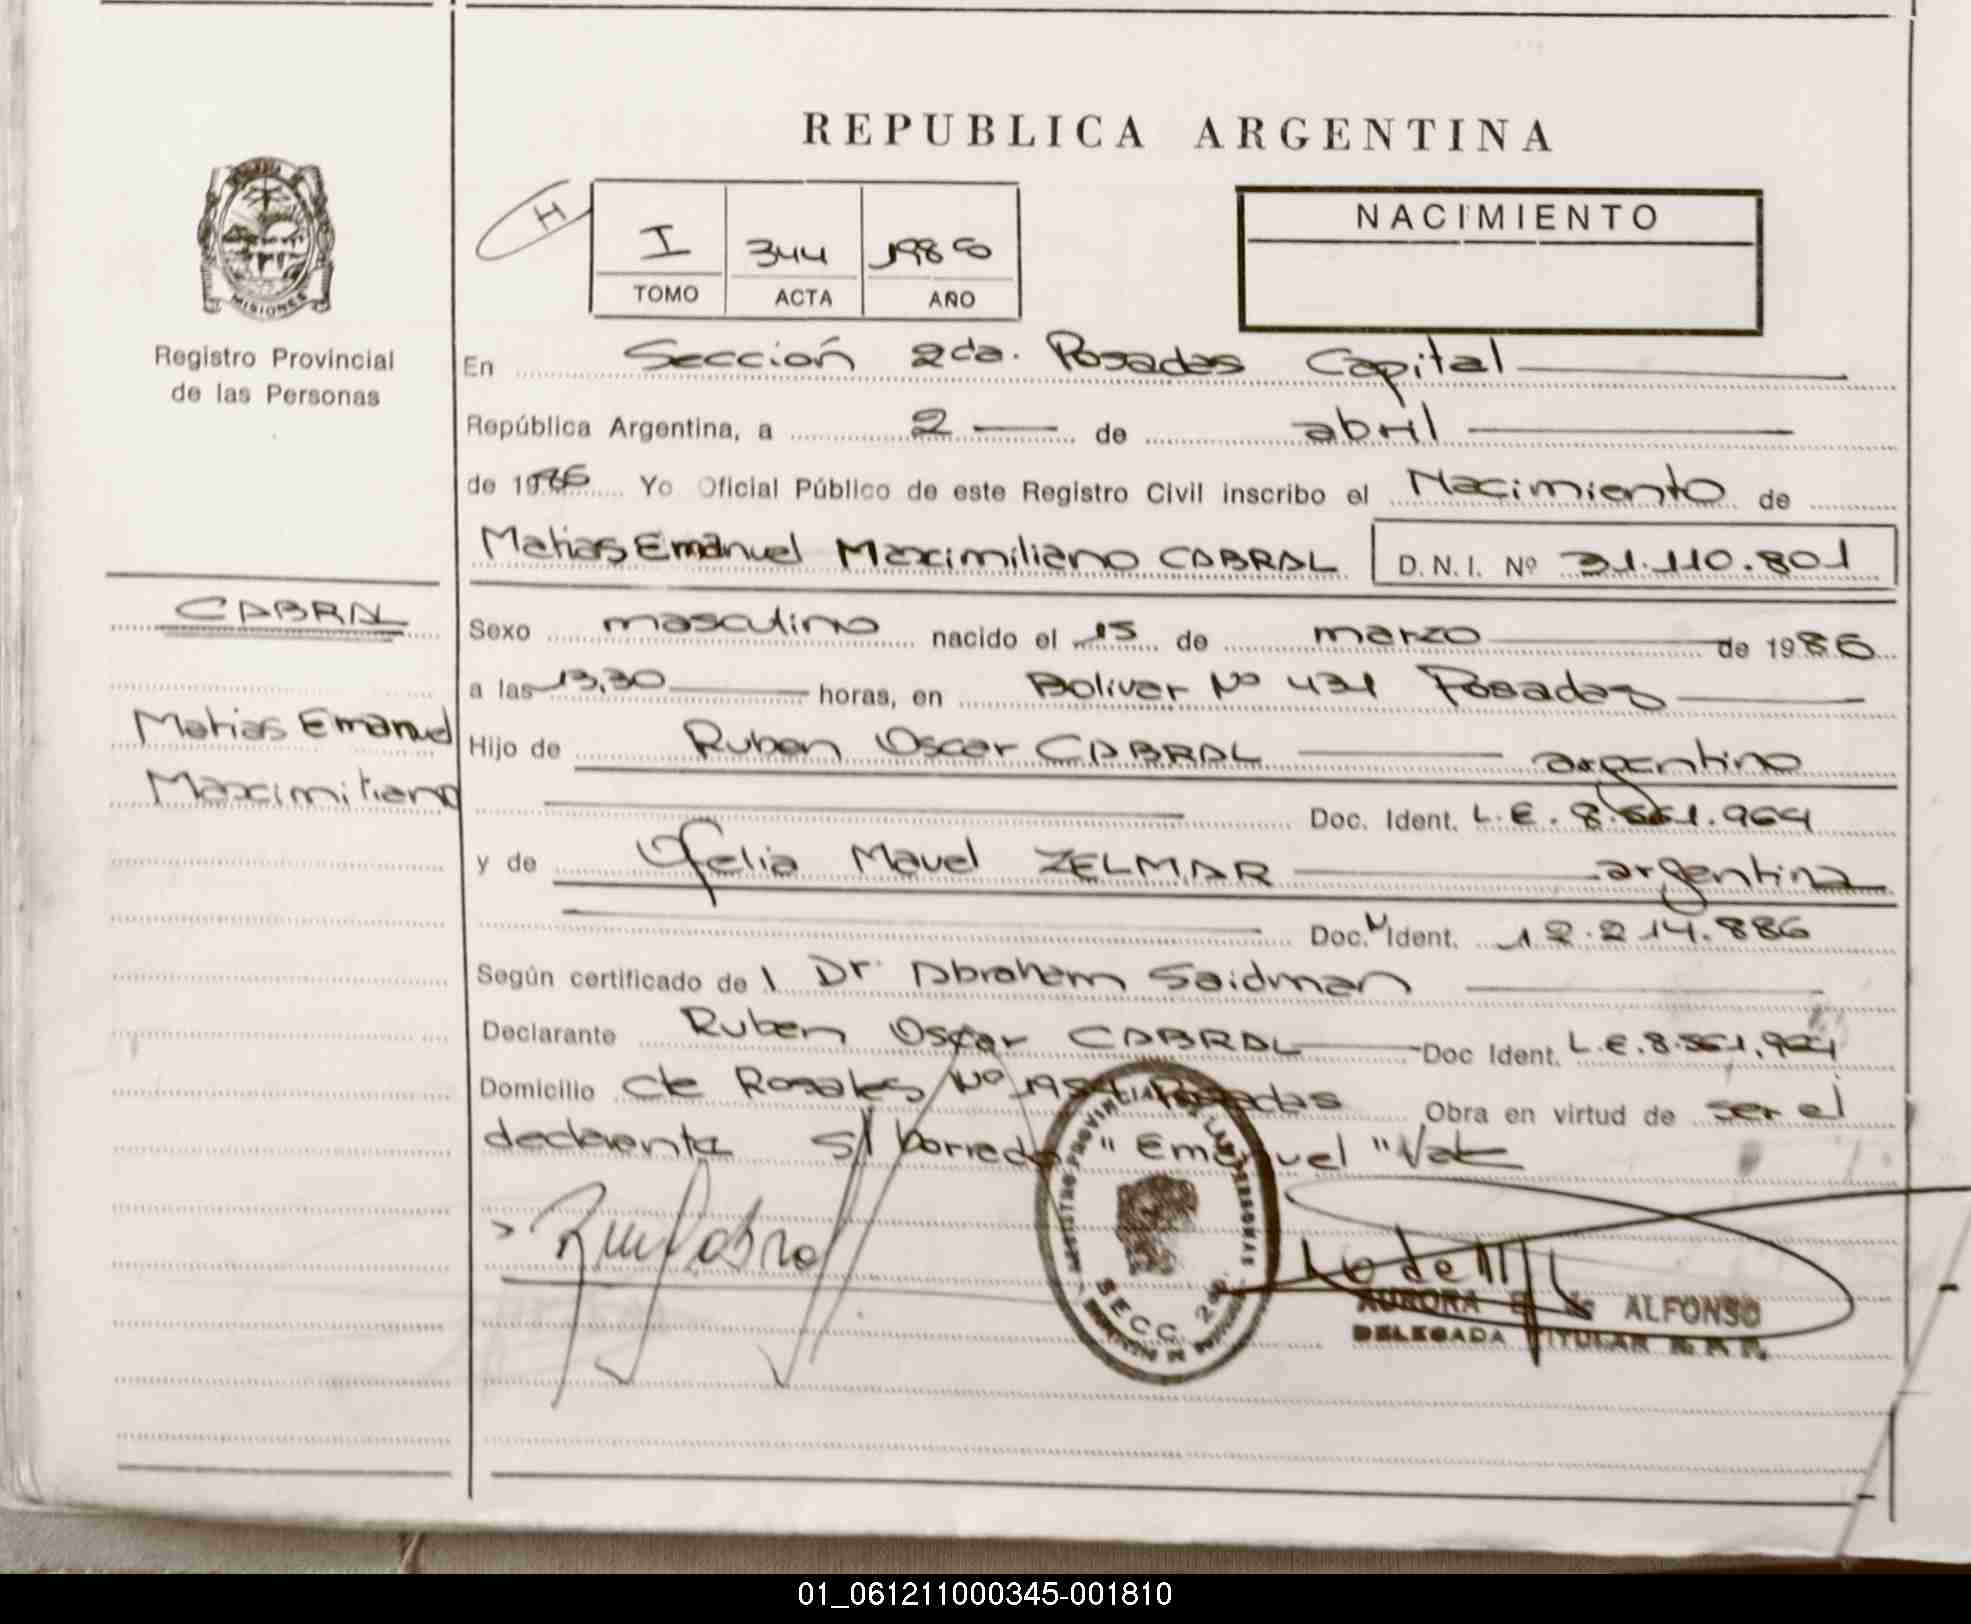 REPUBLICA ARGENTINA
H
I 344
TOMO ACTA AÑO
NACIMIENTO
MISIONES
Registro Provincial
de las Personas
En Sección 2da. Posadas Capital
República Argentina, a 2 de abril
de 1986 Yo Oficial Público de este Registro Civil inscribo el Nacimiento de
Matias Emanuel Maximiliano CABRAL D.N.I. Nº 31.110.801
CABRAL
Sexo masculino nacido el 15 de marzo de 1986
a las 13,30 horas, en Bolivar Nº 431 Posadas
Matias Emanuel
Maximiliano
Hijo de Ruben Oscar CABRAL argentino
Doc. Ident. L.E. 8.561.964
y de Ofelia Mavel ZELMAR argentina
Doc. Ident. 12.214.886
Según certificado de l Dr. Abraham Saidman
Declarante Ruben Oscar CABRAL Doc Ident. L.E.8.561.964
Domicilio Cte Rosales Nº Posadas Obra en virtud de ser el
declarante s/ borrado "Emanuel" Vale
REGISTRO PROVINCIAL DE LAS PERSONAS
SECC. 2da.
AURORA E de ALFONSO
DELEGADA TITULAR R.P.P.
01_061211000345-001810